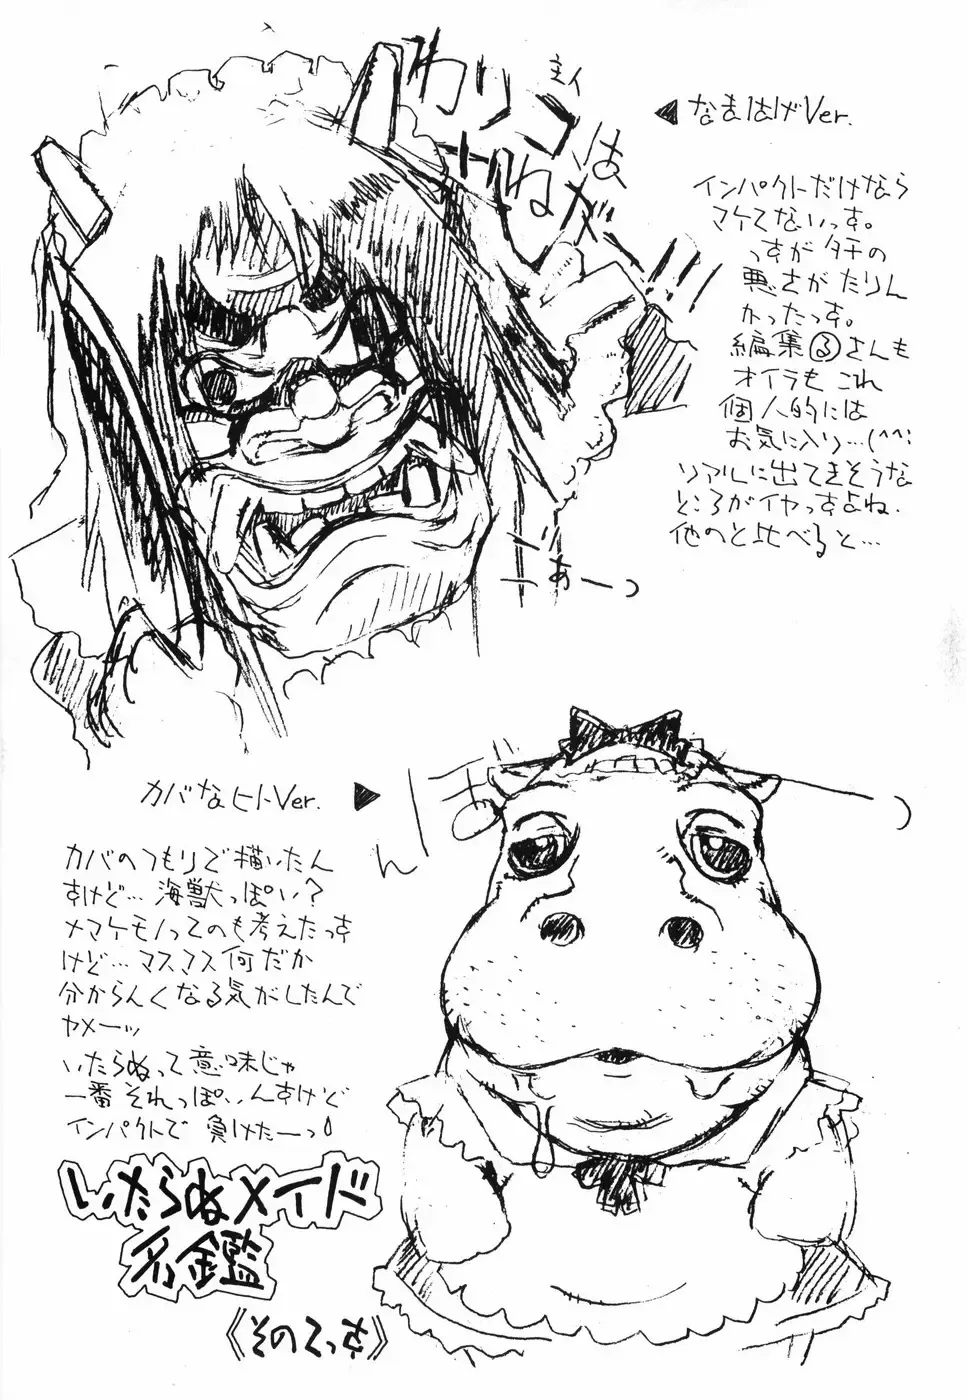 わりコ
はねが!!
◀なまはげVer.
インパクトだけなら
マケてないっす。
っすがタチの
悪さがたりん
かったっす。
編集るさんも
オイラもこれ
個人的には
お気に入り…(^^;
リアルに出てきそうな
ところがイヤっすよね.
他のと比べると…
カバなヒトVer.▶
カバのつもりで描いたん
すけど…海獣っぽい?
ナマケモノってのも考えたっす
けど…マスマス何だか
分からんくなる気がしたんで
ヤメーッ
いたらぬって意味じゃ
一番それっぽいんすけど
インパクトで負けたーっ!
いたらぬメイド
名鑑
《そのてっす》